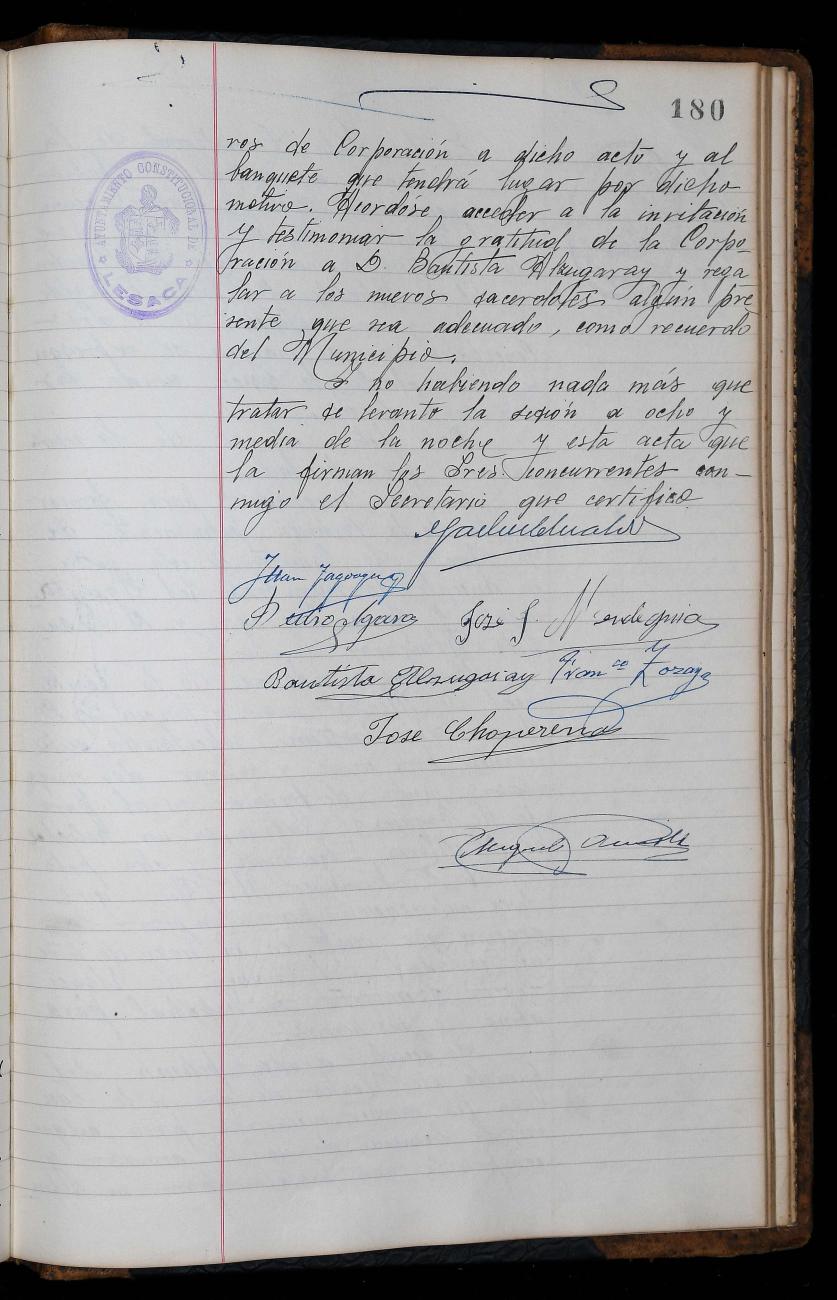 180
AYUNTAMIENTO CONSTITUCIONAL DE
LESACA
ros de Corporación a dicho acto y al
banquete que tendrá lugar por dicho
motivo. Acordóse acceder a la invitación
y testimoniar la gratitud de la Corpo-
ración a D. Bautista Alzugaray y rega
lar a los nuevos sacerdotes algún pre
sente que sea adecuado, como recuerdo
del Municipio.
Y no habiendo nada más que
tratar se levanto la sesión a ocho y
media de la noche y esta acta que
la firman los Sres. concurrentes con-
migo el Secretario que certifico
Juan
Pedro Igara José J. Mendeguia
Bautista Alzugaray Franco Zozaya
Jose Choperena
Miguel